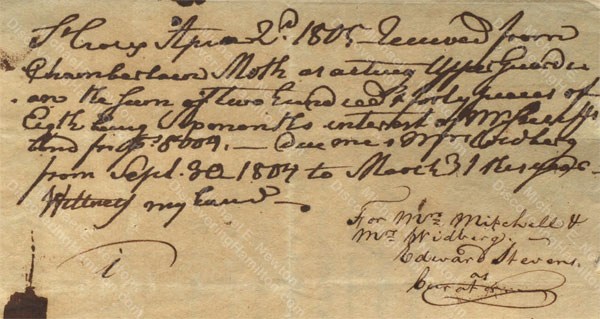 St Croix April 2d. 1805 Received from
Chamberlain Moth as acting Upper Guardi
an the Sum of two hundred & forty pieces of
Eight being 6 months interest of
- Due me & Mrs Widberg
from Sept. 30 1804 to March 31 this year -
Wittness my hand -
For Mrs. Mitchell &
Mrs. Widberg. -
Edward Stevens.
as
1